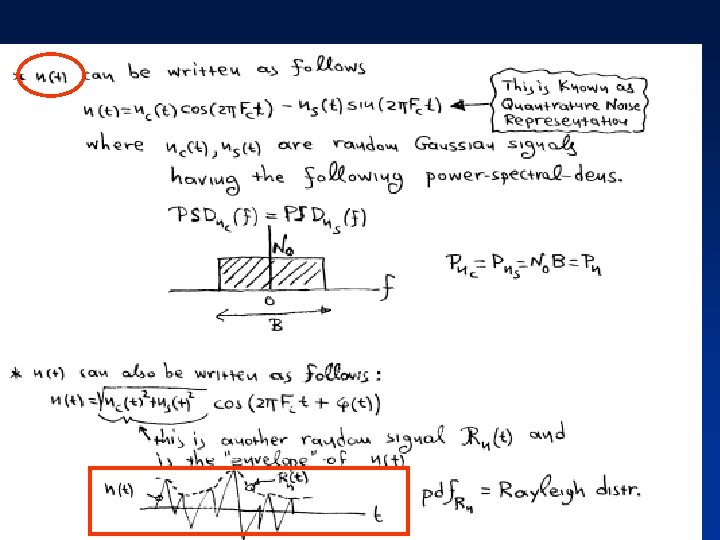 * n(t) can be written as follows
n(t)=n_c(t)cos(2πF_ct) - n_s(t)sin(2πF_ct)
This is Known as
Quantrature Noise
Representation
where n_c(t), n_s(t) are random Gaussian signals
having the following power-spectral-dens.
PSD_{n_c}(f) = PSD_{n_s}(f)
N_0
f
0
B
P_{n_c} = P_{n_s} = N_0B = P_n
* n(t) can also be written as follows:
n(t)=√(n_c(t)²+n_s(t)²) cos(2πF_ct + φ(t))
this is another random signal R_n(t) and
is the "envelope" of n(t)
n(t)
R_n(t)
t
pdf_{R_n} = Rayleigh distr.